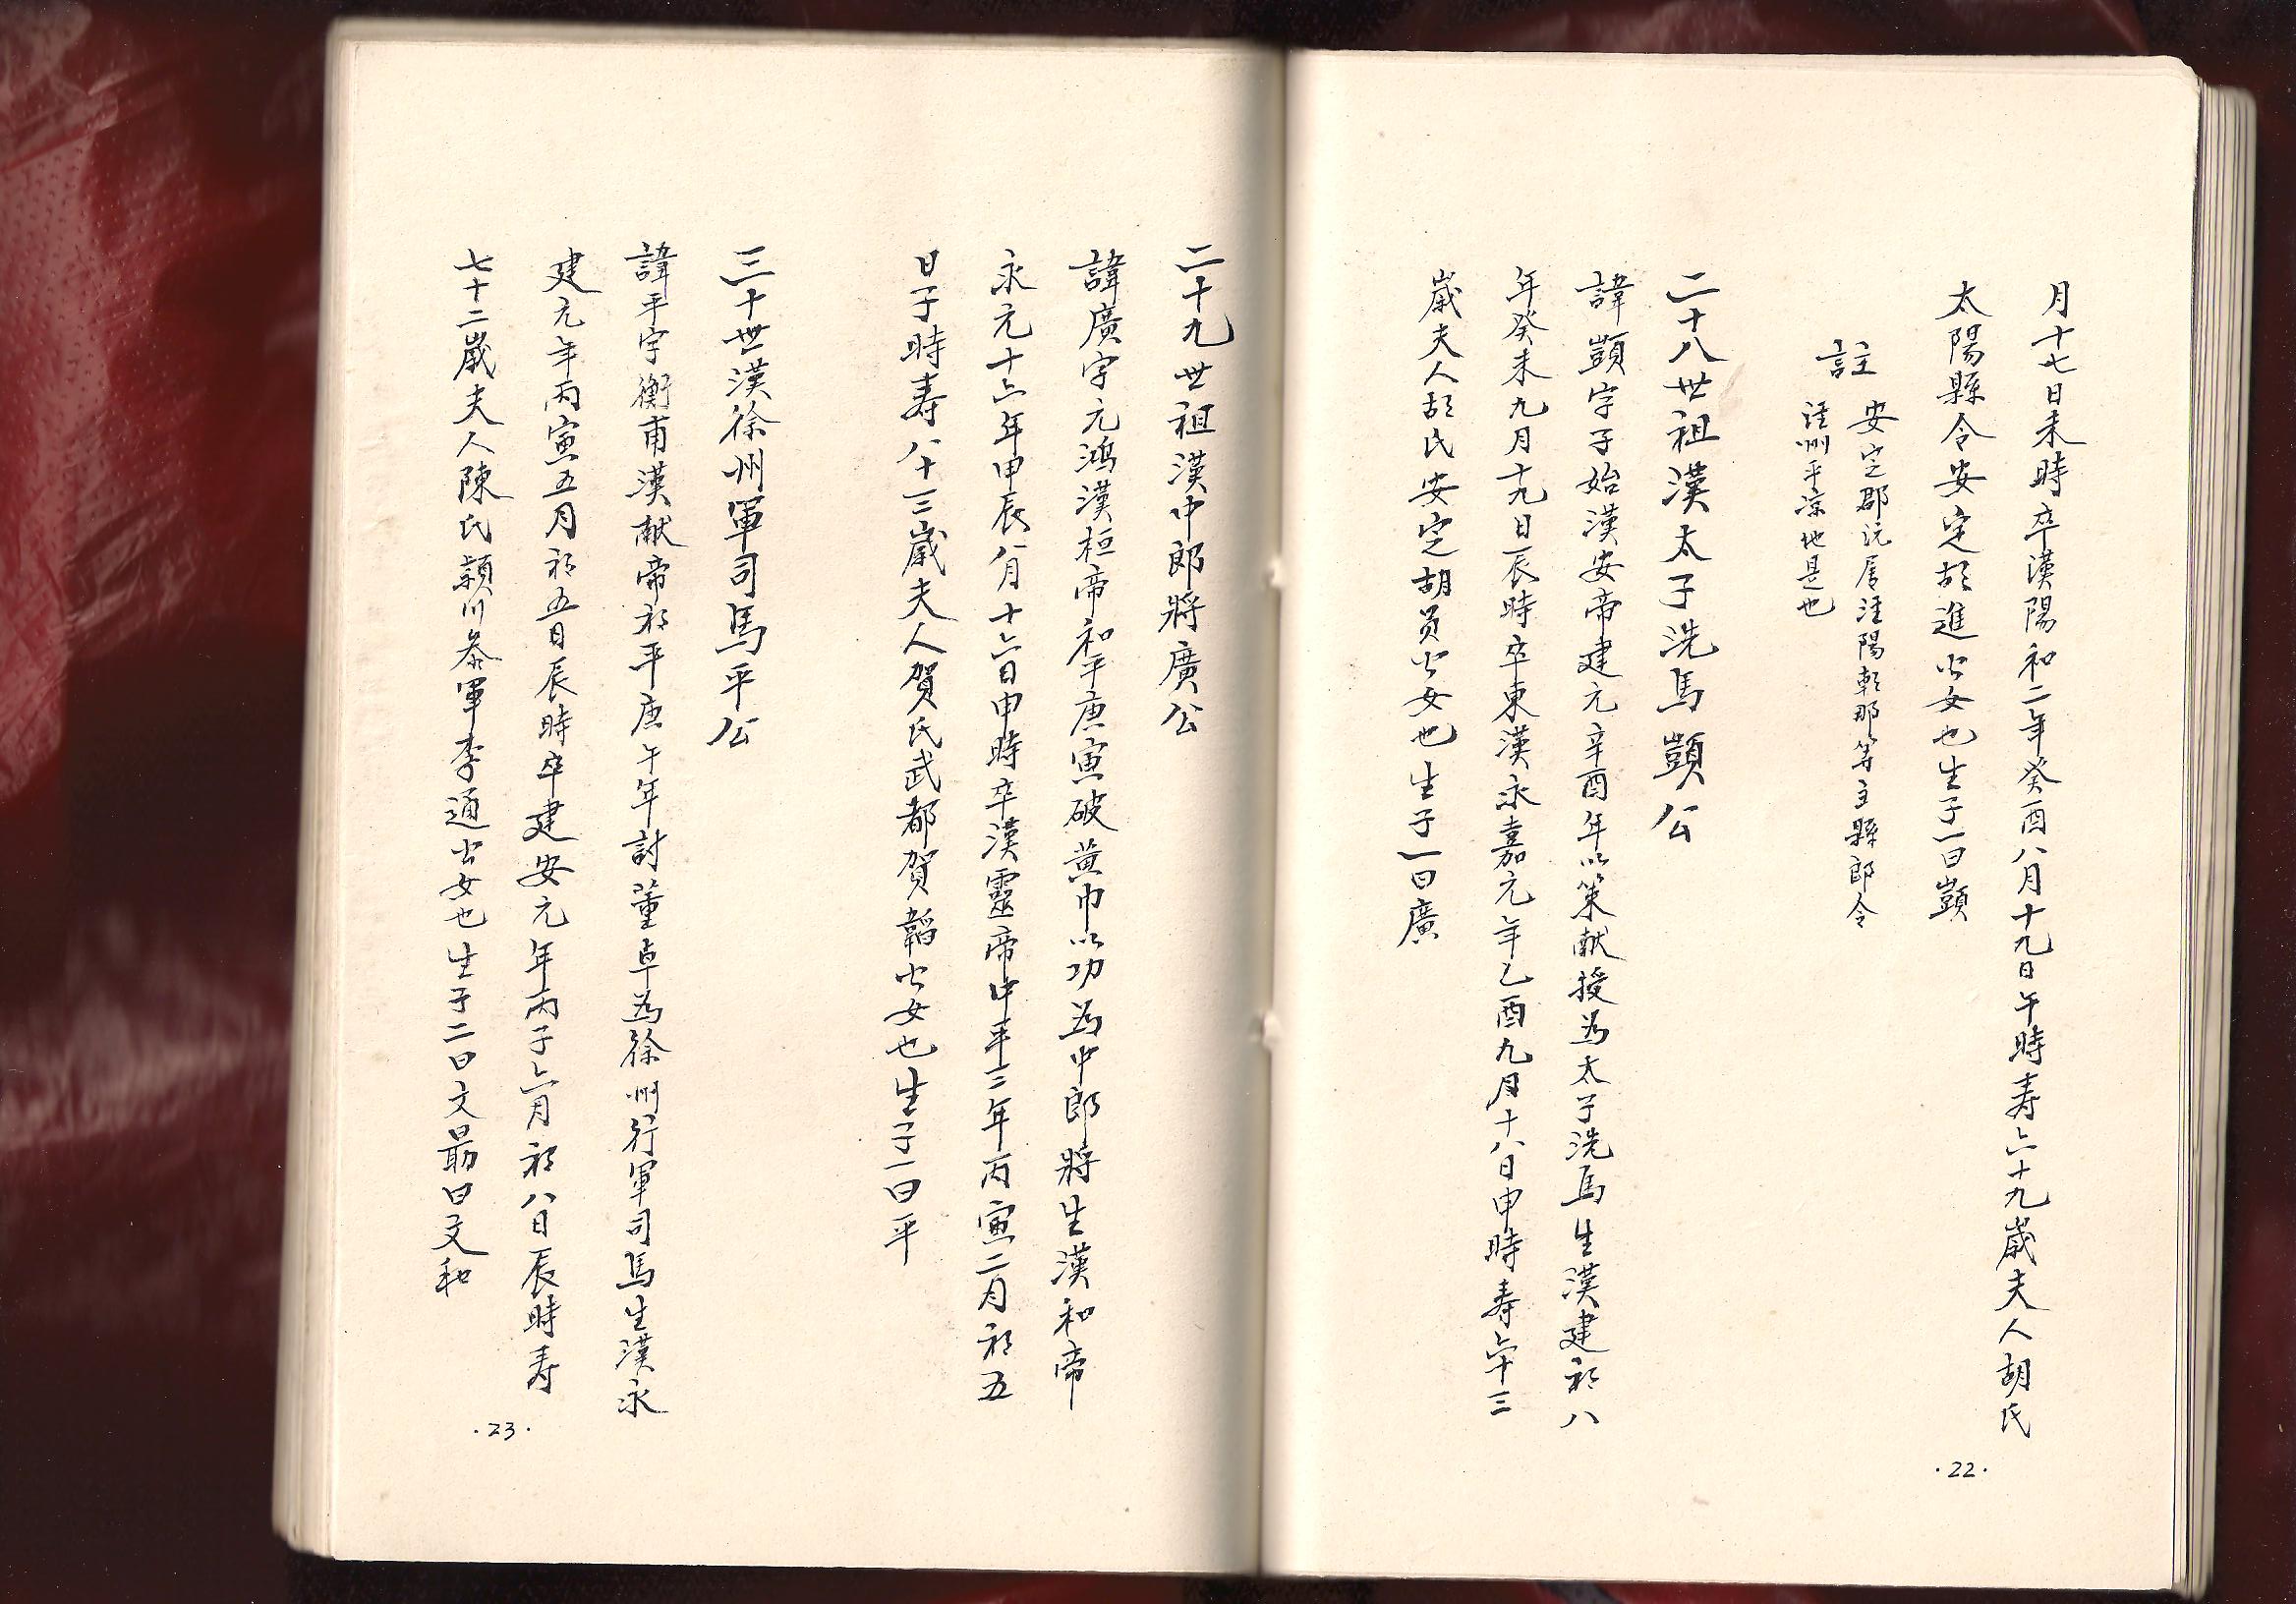 月十七日未時卒漢陽和二年癸酉八月十九日午時寿六十九歲夫人胡氏
太陽縣令安定胡進公女也生子一曰顗
註
安定郡沅居涇陽乾那等主縣郎令
涇州平涼地是也
二十八世祖漢太子洗馬顗公
諱顗字子始漢安帝建元辛酉年以策献授為太子洗馬生漢建初八
年癸未九月十九日辰時卒東漢永嘉元年乙酉九月十八日申時寿六十三
歲夫人胡氏安定胡员公女也生子一曰廣
·22·
二十九世祖漢中郎將廣公
諱廣字元鴻漢桓帝和平庚寅破黄巾以功為中郎將生漢和帝
永元十六年甲辰八月十六日申時卒漢靈帝中平三年丙寅二月初五
日子時寿八十三歲夫人賀氏武都賀韜公女也生子一曰平
三十世漢徐州軍司馬平公
諱平字衡甫漢献帝初平庚午年討董卓為徐州行軍司馬生漢永
建元年丙寅五月初五日辰時卒建安元年丙子六月初八日辰時寿
七十二歲夫人陳氏頴川叅軍李通公女也生子二曰文勗曰文和
·23·